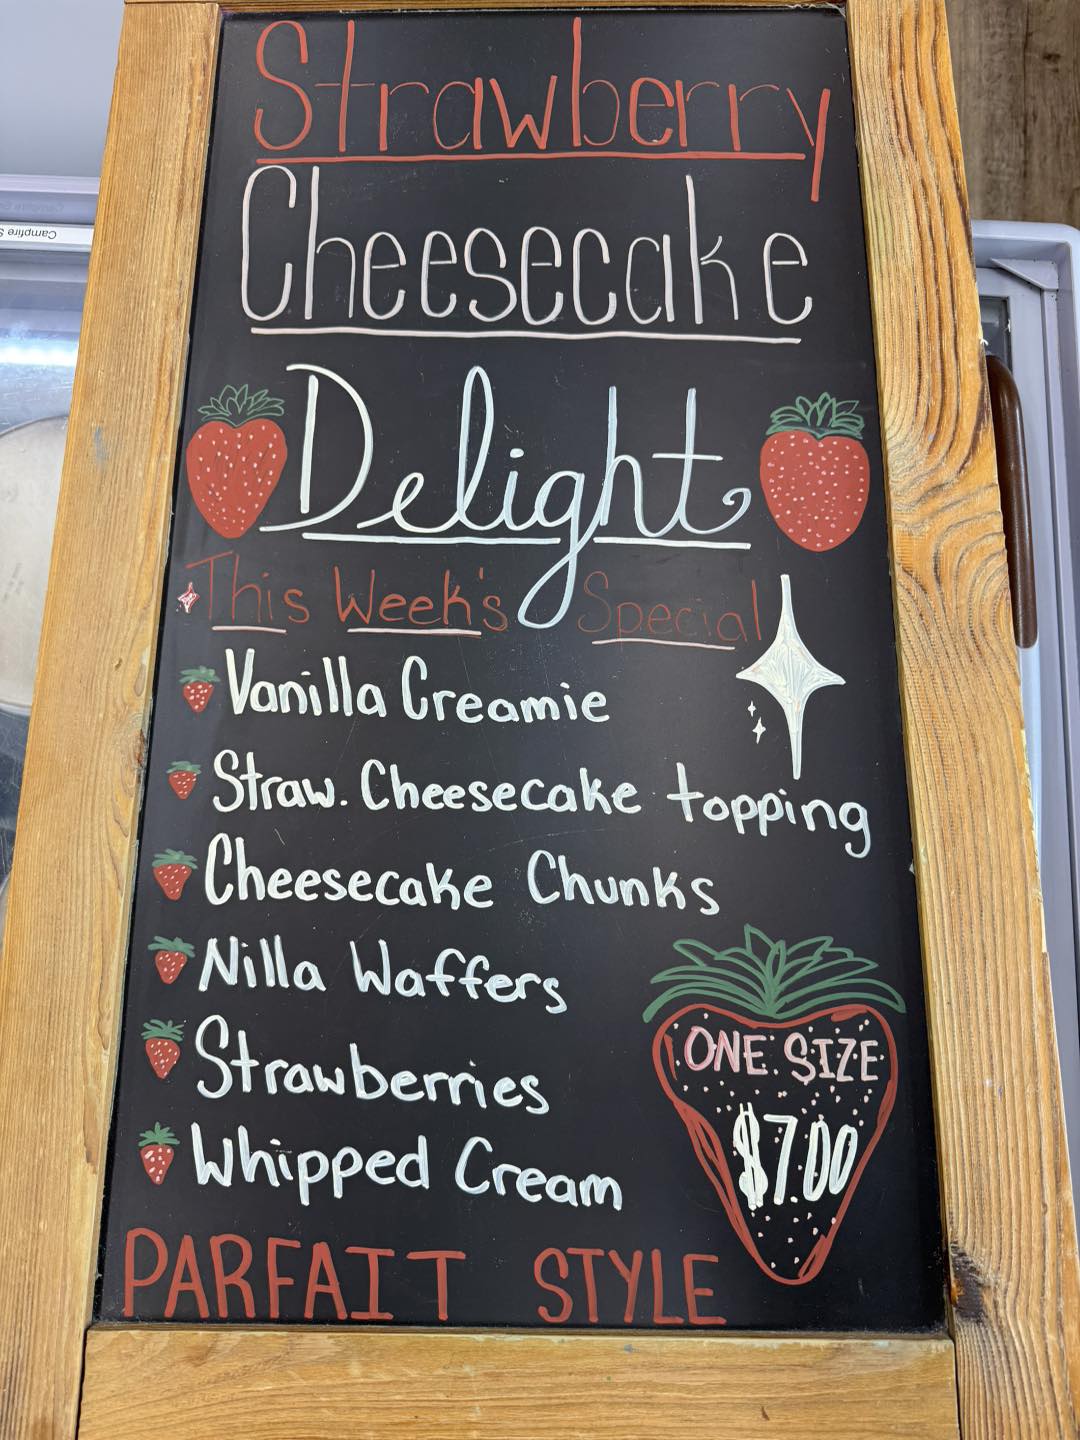 Strawberry
Cheesecake
Delight
This Week's Special
Vanilla Creamie
Straw. Cheesecake topping
Cheesecake Chunks
Nilla Waffers
Strawberries
Whipped Cream
ONE SIZE
$7.00
PARFAIT STYLE
Campfire